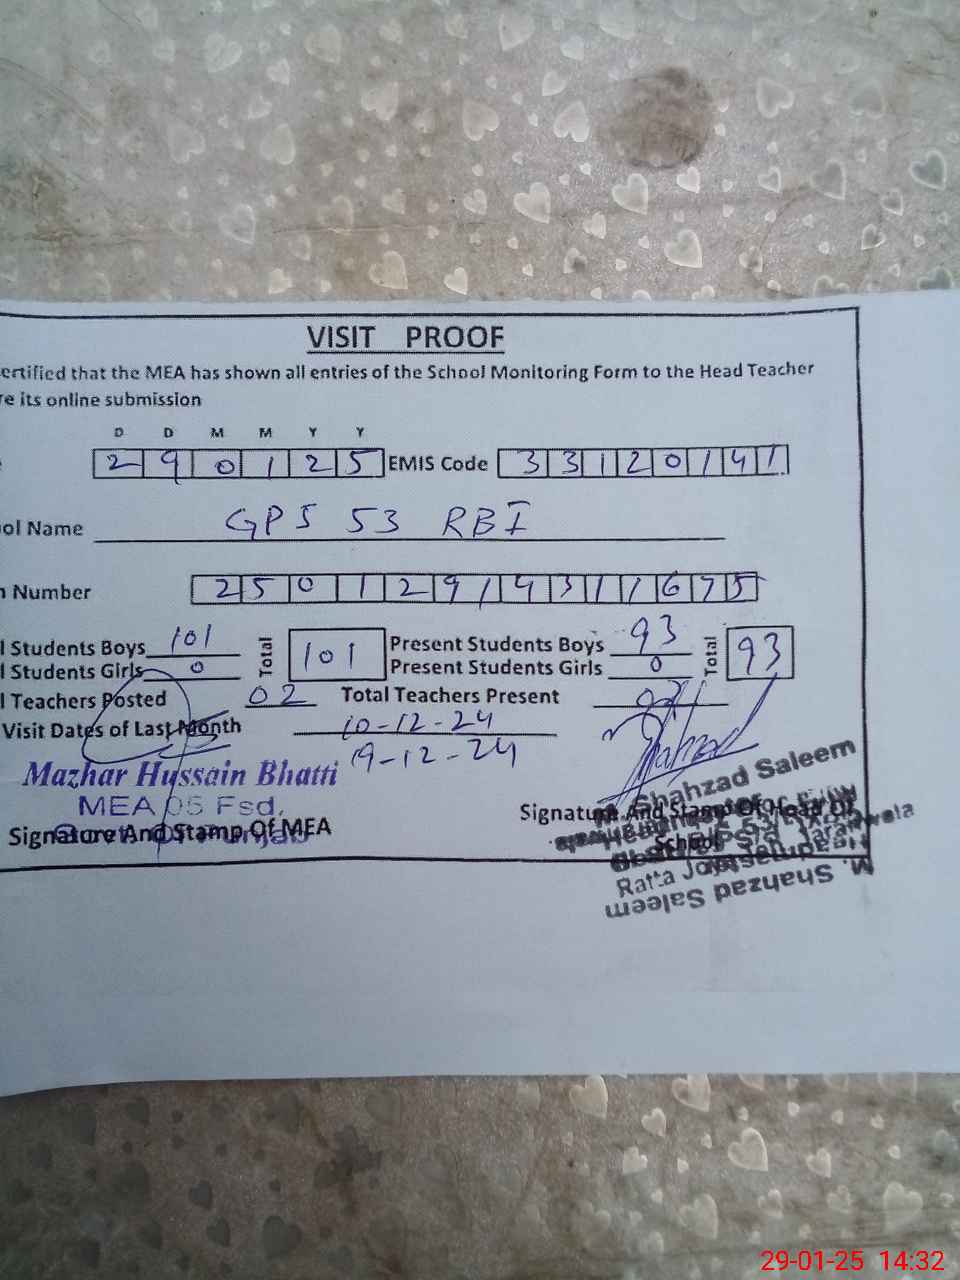 VISIT PROOF
ertified that the MEA has shown all entries of the School Monitoring Form to the Head Teacher
re its online submission
D D M M Y Y
2 9 0 1 2 5 EMIS Code 3 3 1 2 0 1 4 1
ol Name GPS 53 RBI
Number 2 5 0 1 2 9 1 4 3 1 1 6 7 5
l Students Boys 101 Total 101 Present Students Boys 93 Total 93
l Students Girls 0 Present Students Girls 0
l Teachers Posted 02 Total Teachers Present
Visit Dates of Last Month 10-12-24
19-12-24
Mazhar Hussain Bhatti
MEA 05 Fsd,
Signature And Stamp Of MEA
Shahzad
M. Shahzad Saleem
Signature And Stamp Of Head Of
School
Jaranwala
Ratta
M. Shahzad Saleem
29-01-25 14:32